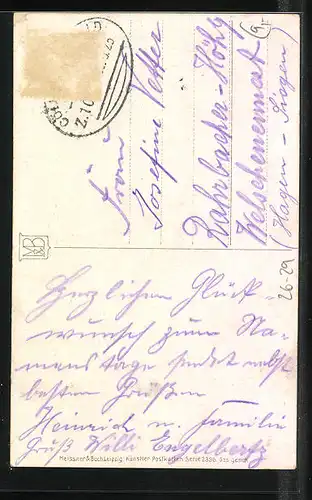 Frau
Josefine Vetter
Rahrbacher-Höhe
Welschenennest
(Hagen - Siegen)
Herzlichen Glück-
wunsch zum Na-
menstage sendet nebst
besten Grüßen
Heinrich u. Familie
Gruß Willi Engelbertz
Meissner & Buch, Leipzig. Künstler Postkarten Serie
26-29
MB